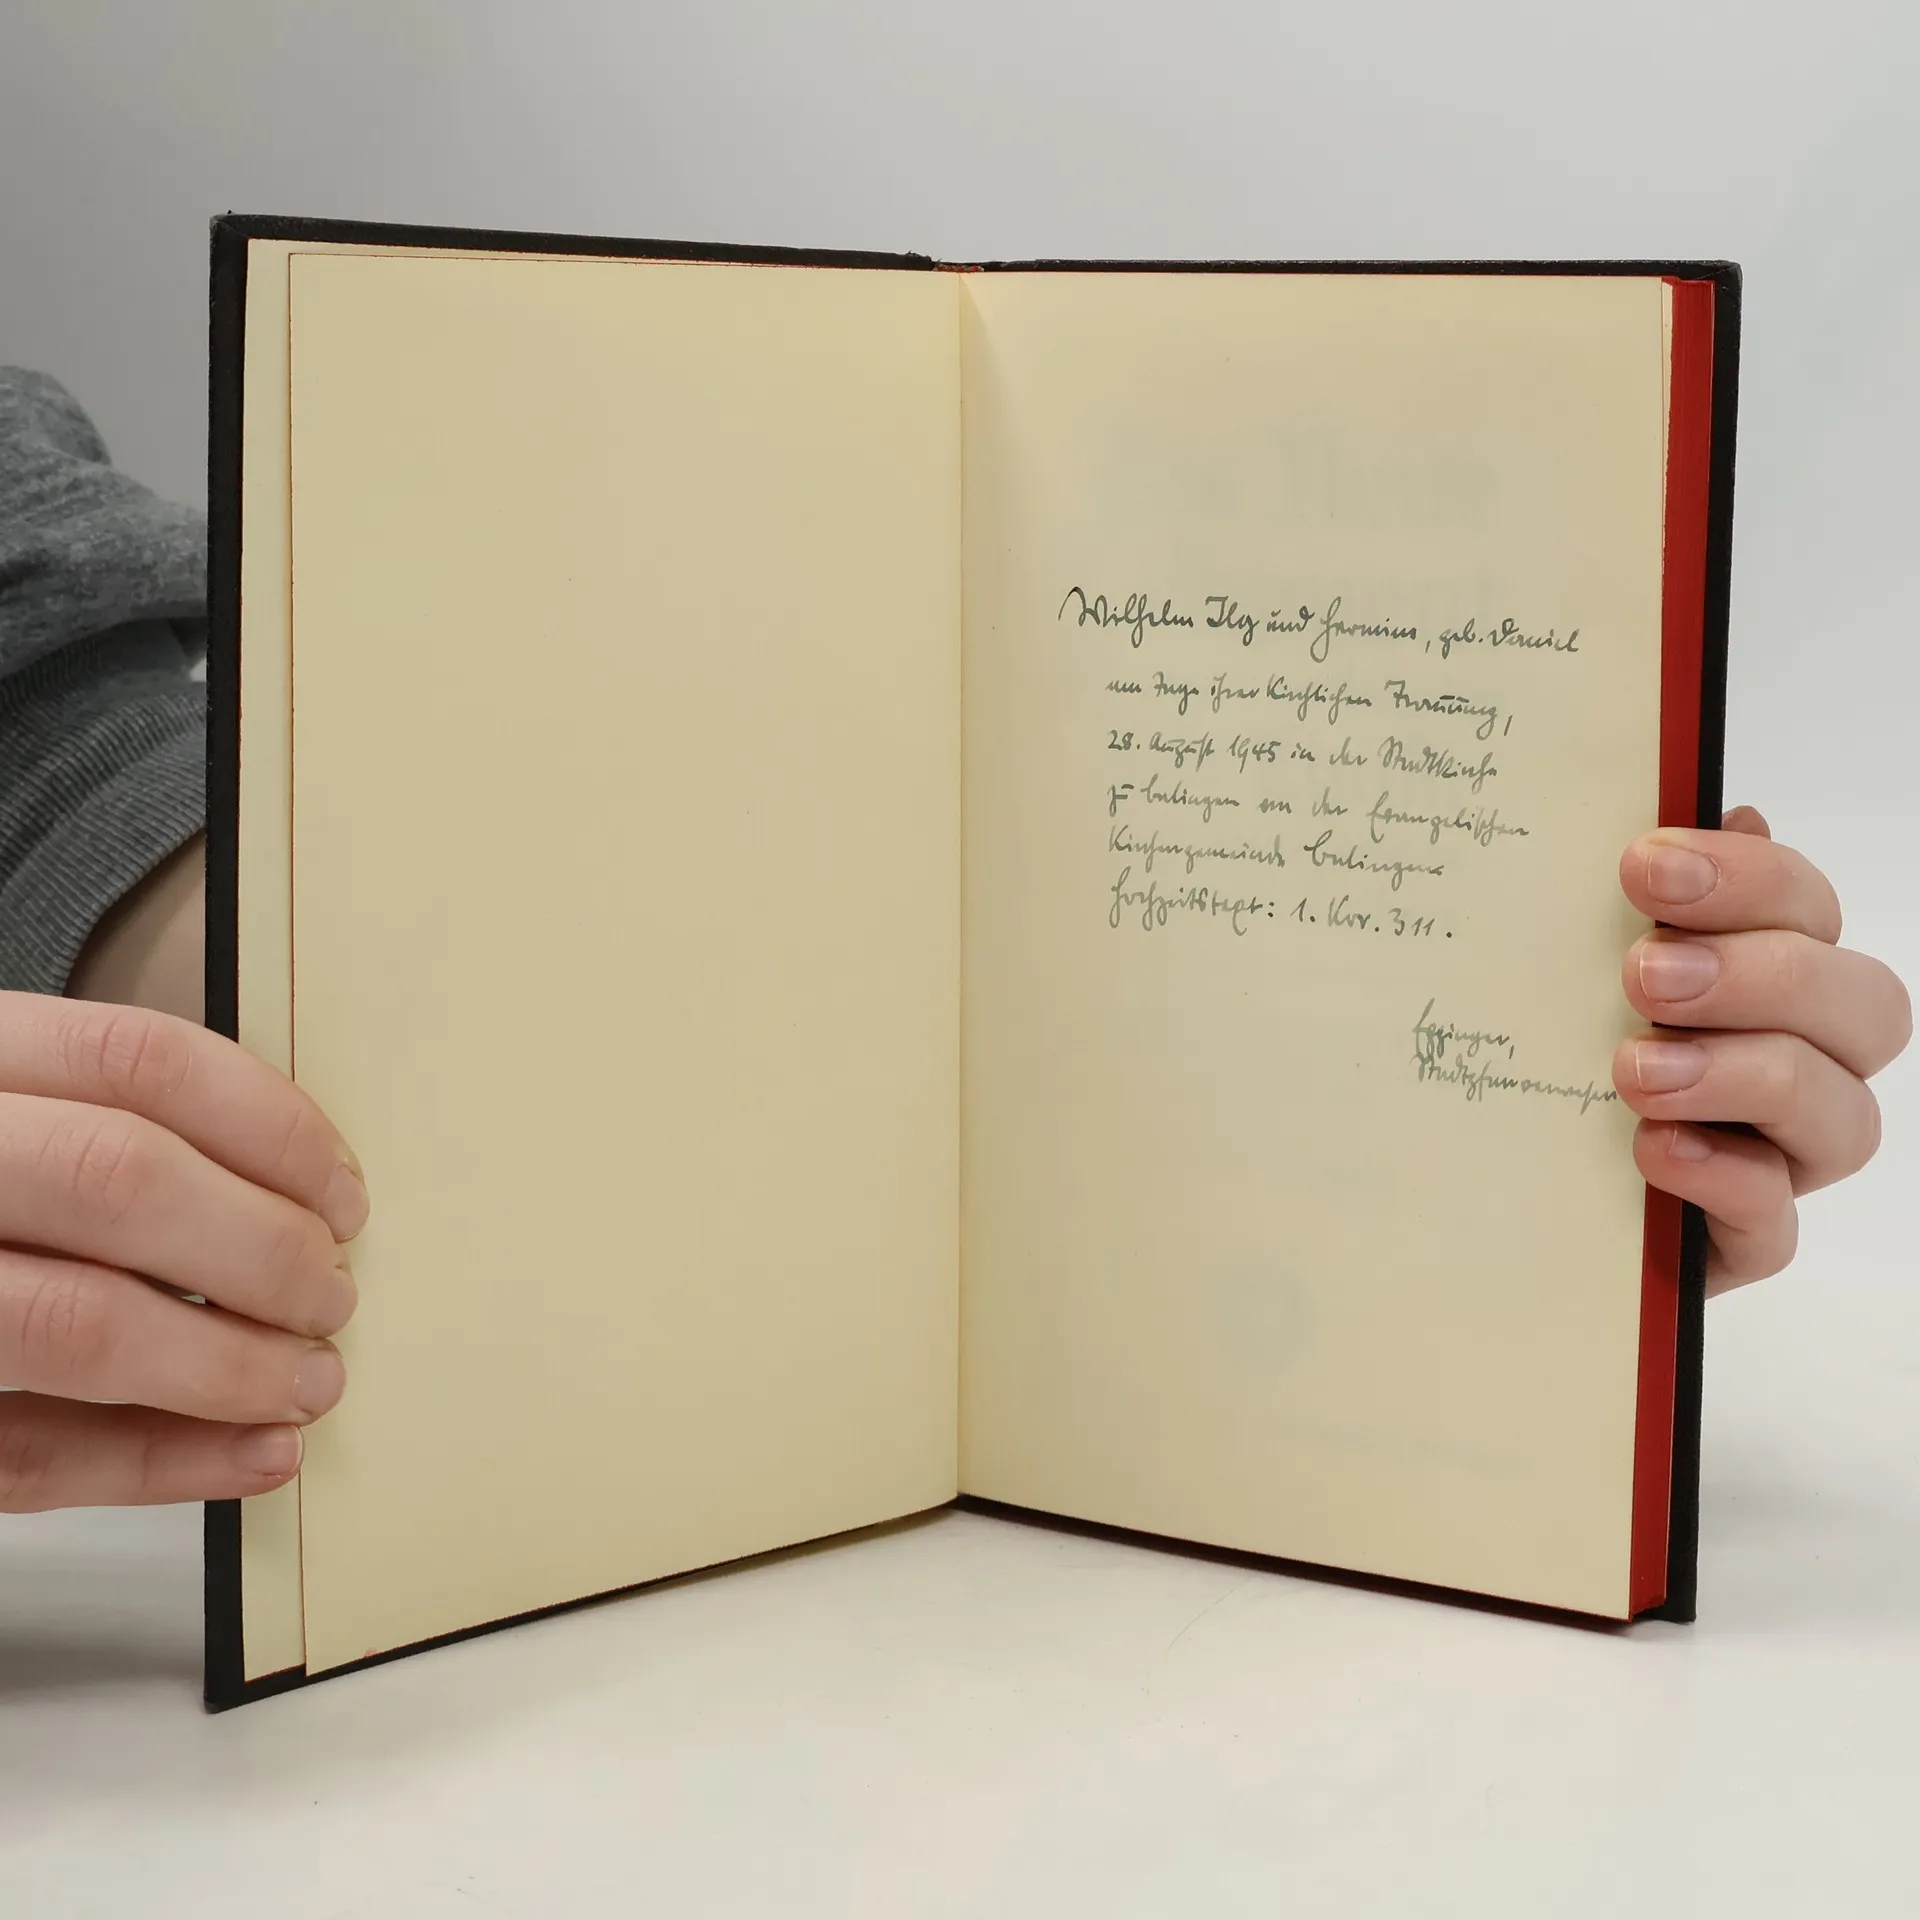 Wilhelm Ilg und Hermine, geb. Daniel
am Tage ihrer Kirchlichen Trauung,
28. August 1945 in der Stadtkirche
zu Balingen von der Evangelischen
Kirchengemeinde Balingen.
Hochzeitstext: 1. Kor. 3 11.
Eppinger,
Stadtpfarrverweser